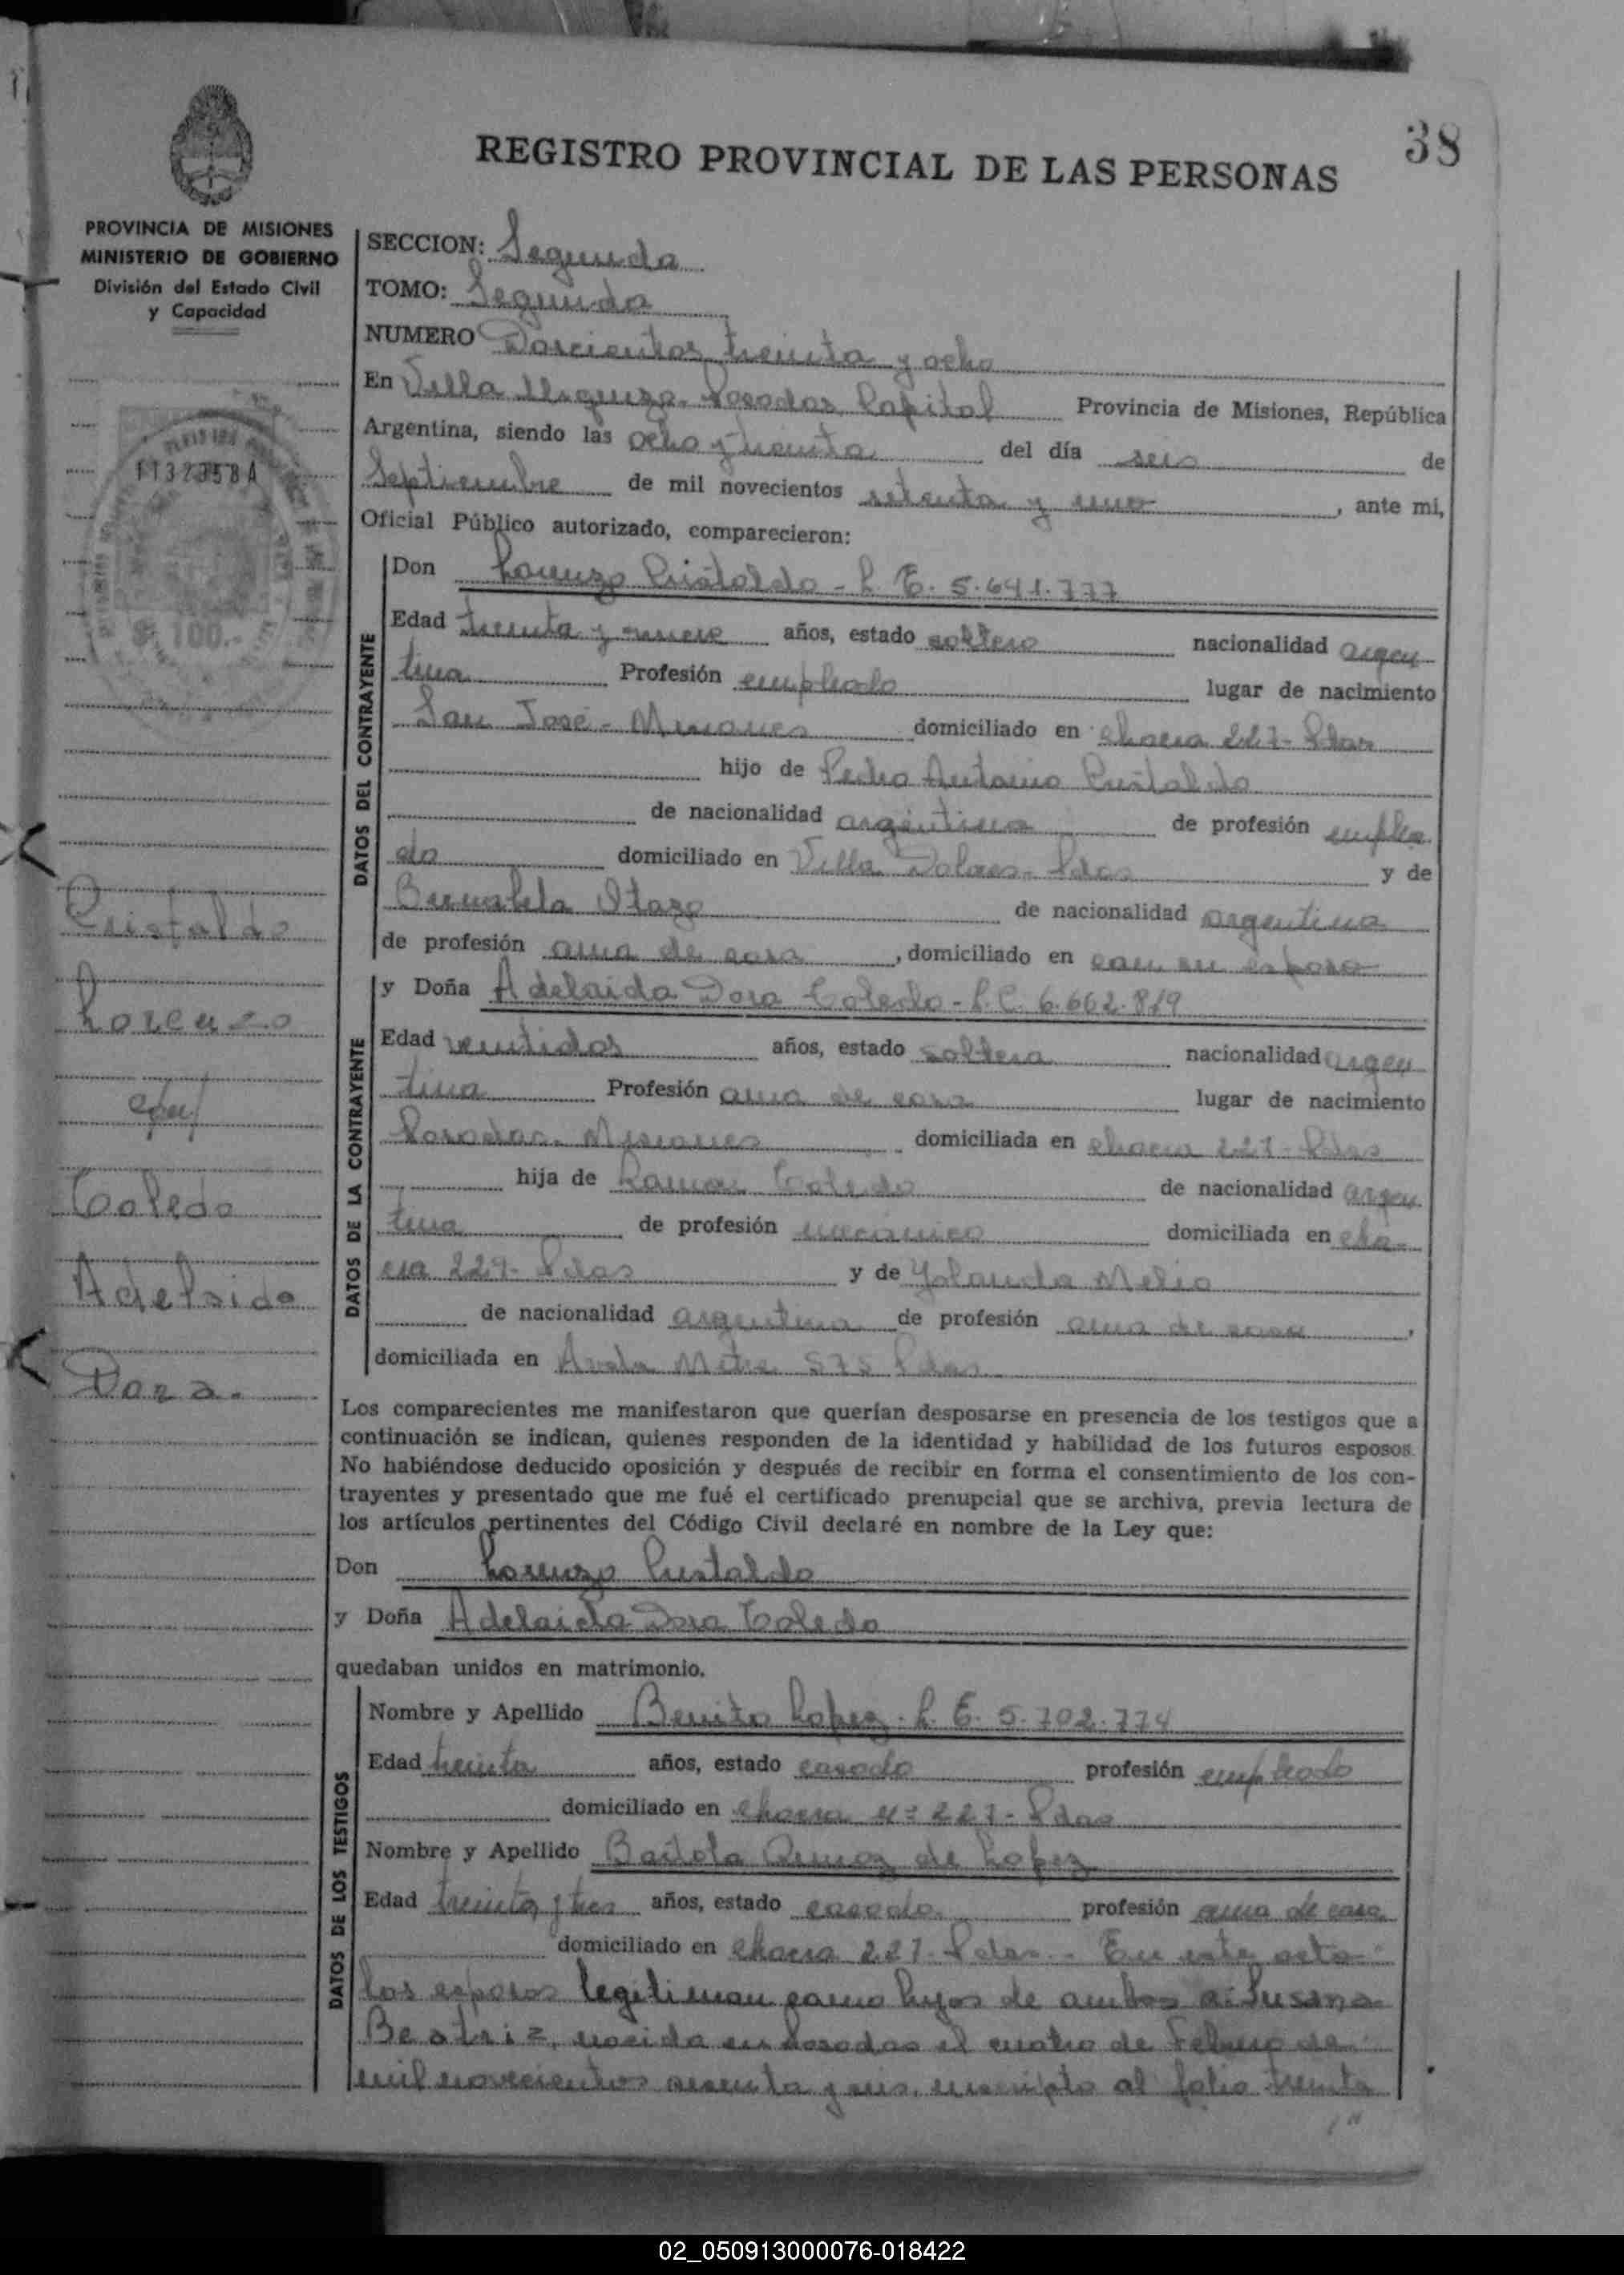 38
REGISTRO PROVINCIAL DE LAS PERSONAS
PROVINCIA DE MISIONES
MINISTERIO DE GOBIERNO
División del Estado Civil
y Capacidad
$ 100.-
Cristaldo
Lorenzo
con
Toledo
Adelaida
Dora.
SECCION: Segunda
TOMO: Segundo
NUMERO Doscientos treinta y ocho
En Villa Urquiza - Posadas Capital Provincia de Misiones, República
Argentina, siendo las ocho y treinta del día seis de
Septiembre de mil novecientos setenta y uno, ante mi,
Oficial Público autorizado, comparecieron:
DATOS DEL CONTRAYENTE
Don Lorenzo Cristaldo - L. E. 5.641.777
Edad treinta y nueve años, estado soltero nacionalidad argen
tina Profesión empleado lugar de nacimiento
San José - Misiones domiciliado en chacra 227 - Pdas
hijo de Pedro Antonio Cristaldo
de nacionalidad argentina de profesión emplea
do domiciliado en Villa Dolores - Pdas y de
Bernabela Otazo de nacionalidad argentina
de profesión ama de casa, domiciliado en con su esposo
DATOS DE LA CONTRAYENTE
y Doña Adelaida Dora Toledo - L.C. 6.662.819
Edad veintidos años, estado soltera nacionalidad argen
tina Profesión ama de casa lugar de nacimiento
Posadas - Misiones domiciliada en chacra 227 - Pdas
hija de Ramon Toledo de nacionalidad argen
tina de profesión mecánico domiciliada en cha-
cra 229 - Pdas y de Yolanda Melio
de nacionalidad argentina de profesión ama de casa,
domiciliada en Avda Mitre 575 Pdas
Los comparecientes me manifestaron que querían desposarse en presencia de los testigos que a
continuación se indican, quienes responden de la identidad y habilidad de los futuros esposos.
No habiéndose deducido oposición y después de recibir en forma el consentimiento de los con-
trayentes y presentado que me fué el certificado prenupcial que se archiva, previa lectura de
los artículos pertinentes del Código Civil declaré en nombre de la Ley que:
Don Lorenzo Cristaldo
y Doña Adelaida Dora Toledo
quedaban unidos en matrimonio.
DATOS DE LOS TESTIGOS
Nombre y Apellido Benito Lopez - L. E. 5.702.774
Edad treinta años, estado casado profesión empleado
domiciliado en chacra nº 227 - Pdas
Nombre y Apellido de Lopez
Edad treinta y tres años, estado casada profesión ama de casa
domiciliado en chacra 227 - Pdas - En este acto
los esposos legitiman como hijos de ambos a: Susana
Beatriz, nacida en Posadas el cuatro de Febrero de
mil novecientos sesenta y seis, inscripto al folio treinta
02_050913000076-018422